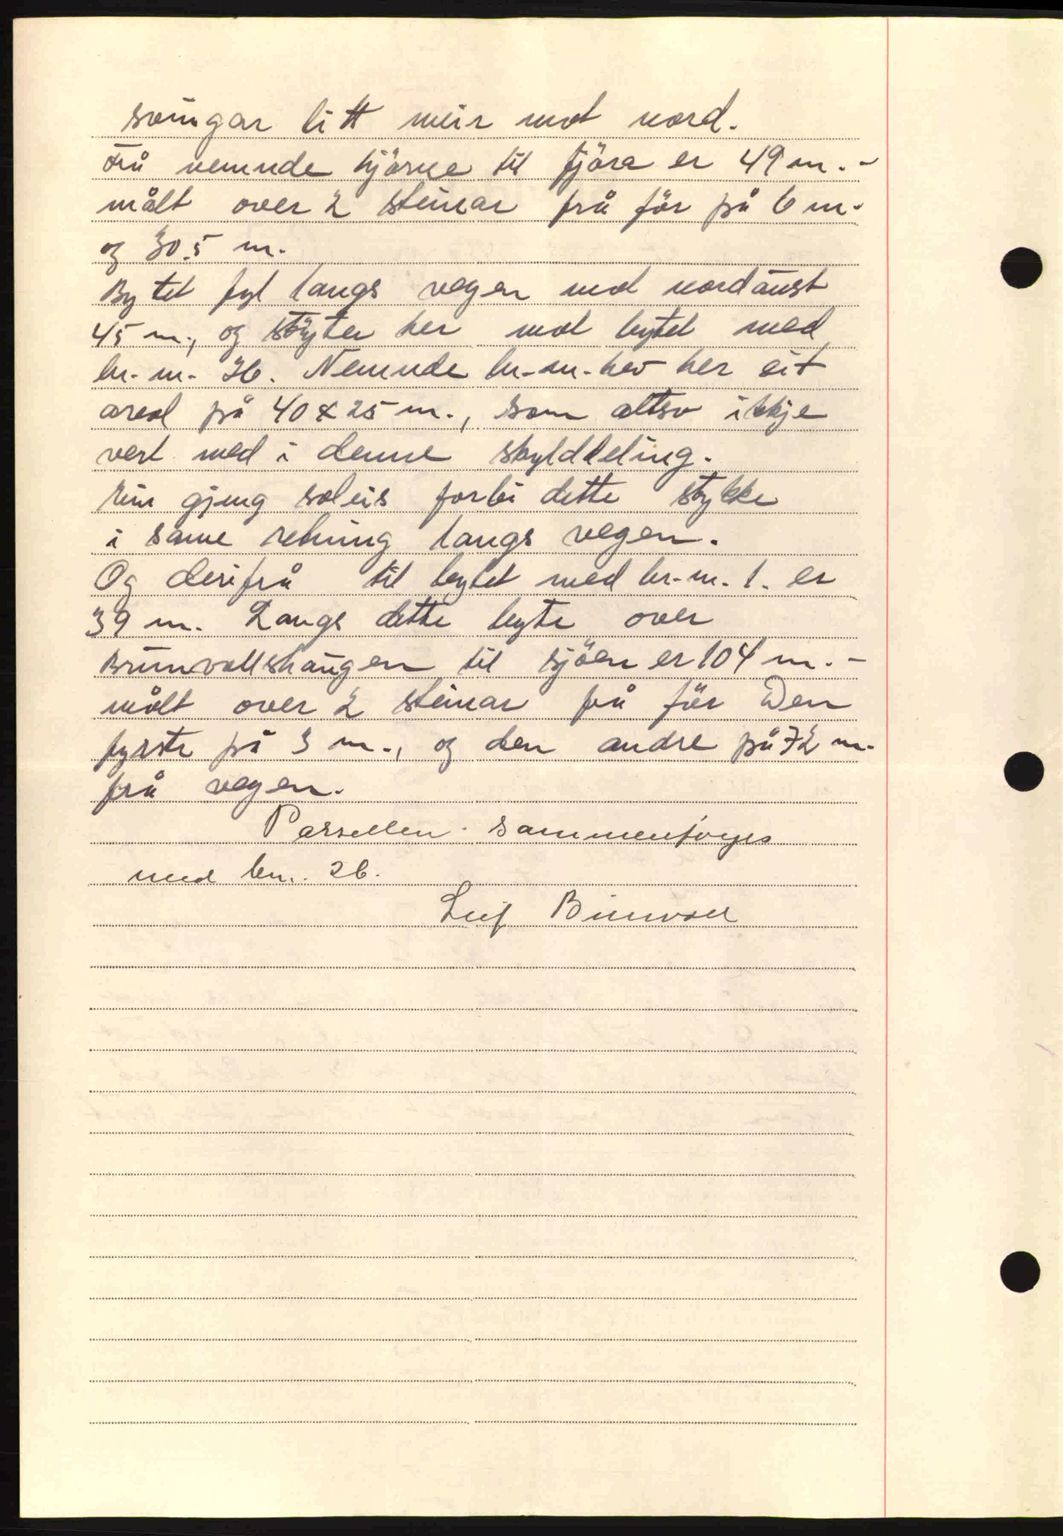 svingar litt meir mot nord.
Frå nemnde hjörne til fjöra er 49 m. -
målt over 2 steinar frå för på 6 m.
og 30.5 m.
Bytet fyl langs vegen mot nordaust
45 m., og stöyter her mot bytet med
br. m. 26. Nemnde br. m. hev her eit
areal på 40 x 25 m., som altso ikkje
vert med i denne skylddeling.
Lin gjeng soleis forbi dette stykke
i same retning langs vegen.
Og derifrå til bytet med br. m. 1. er
39 m. Langs dette byte over
Brunvollshaugen til sjöen er 104 m. -
målt over 2 steinar frå för Den
fyrste på 3 m., og den andre på 72 m.
frå vegen.
Parsellen sammenföyes
med bn. 26.
Leif